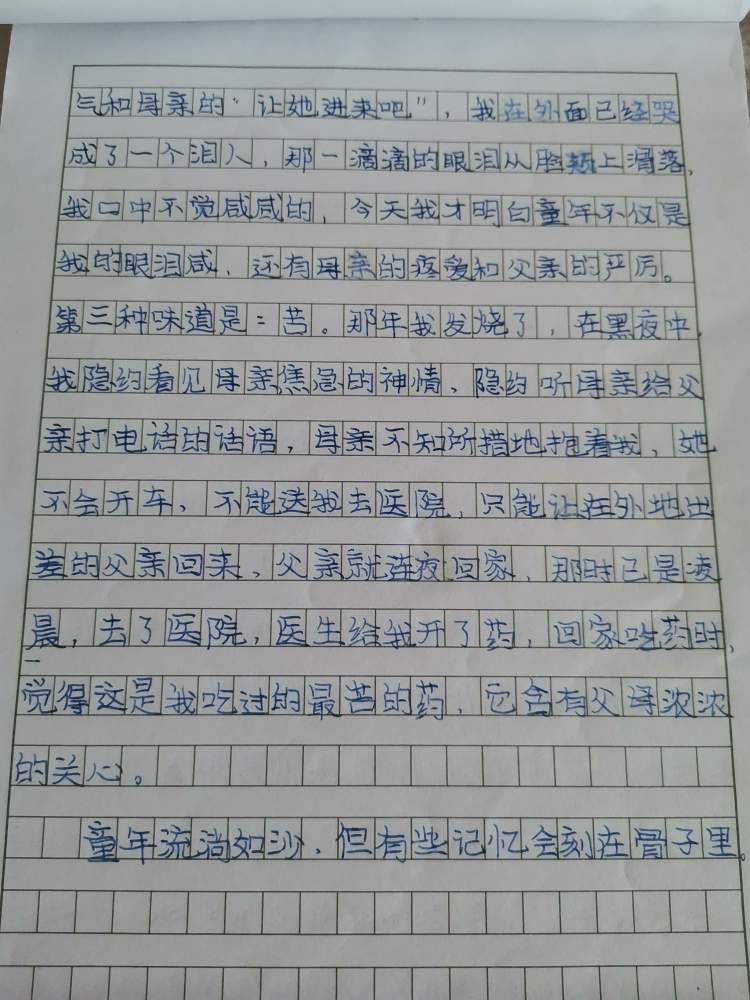 气和母亲的“让她进来吧”，我在外面已经哭
成了一个泪人，那一滴滴的眼泪从脸颊上滑落，
我口中不觉咸咸的，今天我才明白童年不仅是
我的眼泪咸，还有母亲的疼爱和父亲的严厉。
第三种味道是：苦。那年我发烧了，在黑夜中，
我隐约看见母亲焦急的神情、隐约听母亲给父
亲打电话的话语，母亲不知所措地抱着我，她
不会开车、不能送我去医院，只能让在外地出
差的父亲回来、父亲就连夜回家，那时已是凌
晨，去了医院，医生给我开了药，回家吃药时，
觉得这是我吃过的最苦的药，它含有父母浓浓
的关心。
童年流淌如沙，但有些记忆会刻在骨子里。